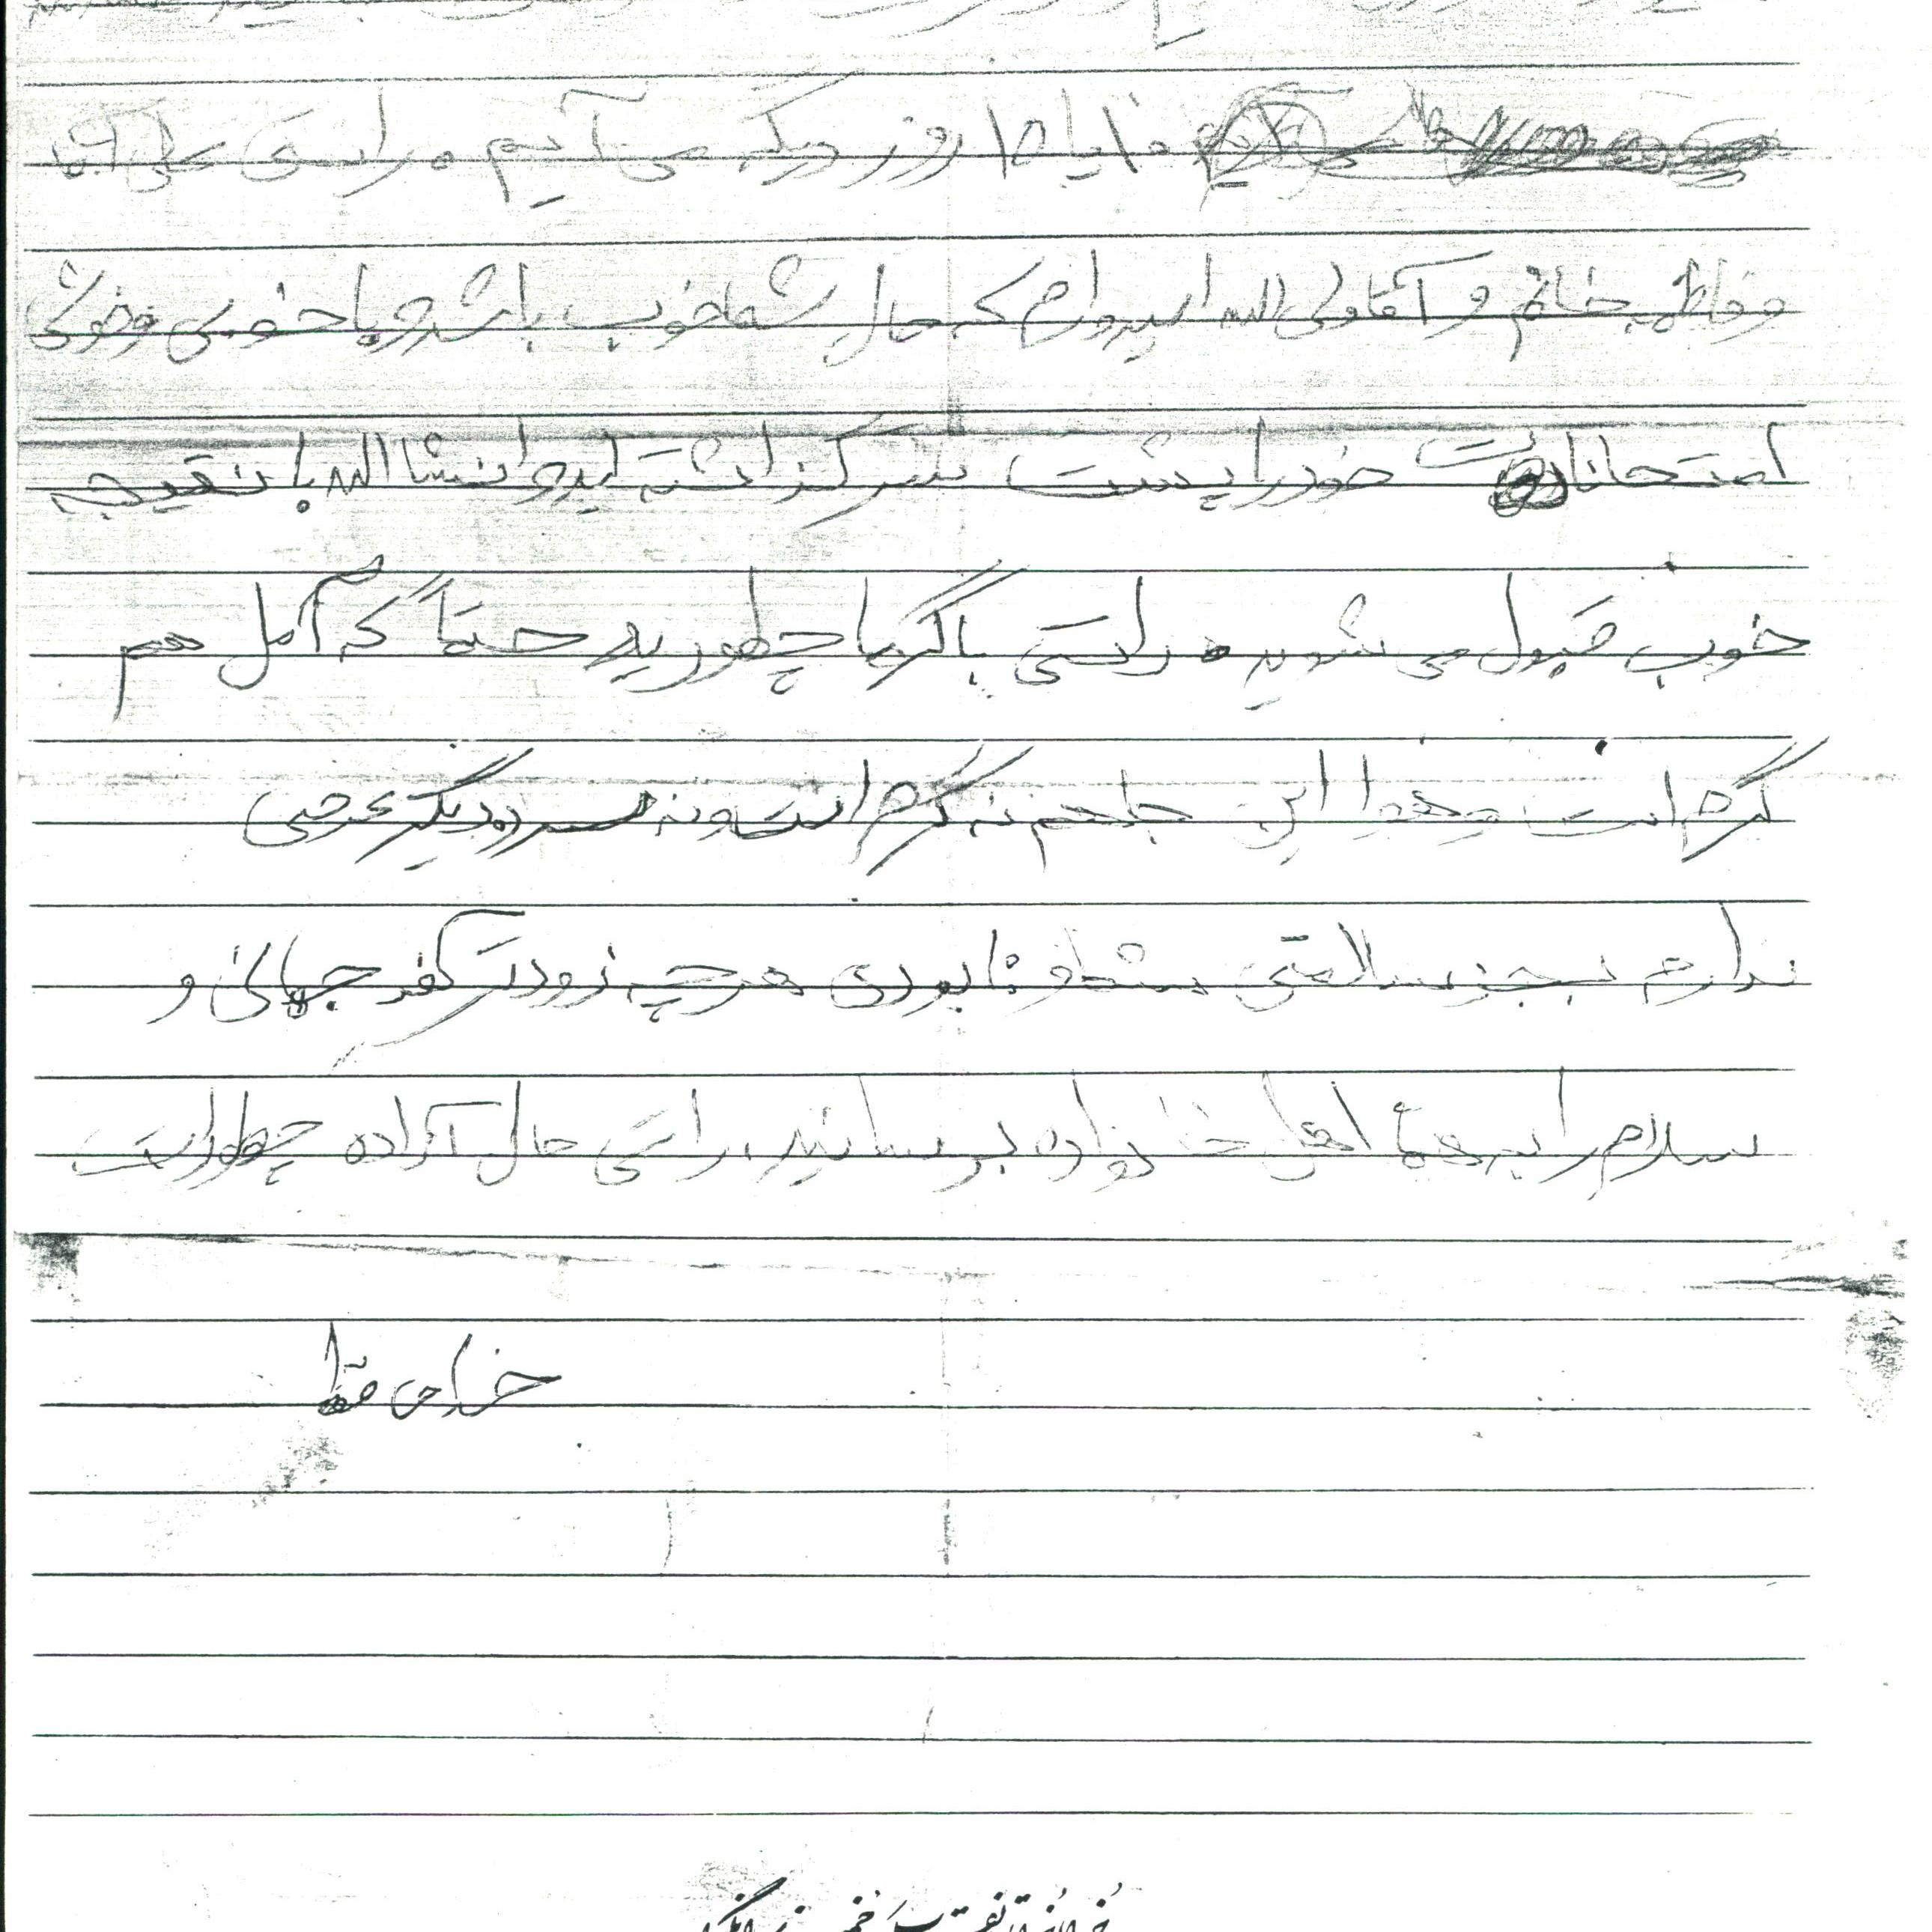 ۱۰ یا ۱۵ روز دیگر می آئیم . راستی علی آقا
و فاطمه خانم و آقا ولی الله امیدوارم که حال شما خوب باشد و با خوبی و خوشی
امتحانات خود را پشت سر گذاشته اید و انشا الله با نتیجه
خوب قبول می شوید . راستی با گرما چطورید حتماً که آمل هم
گرم است و هوا این جا هم نه گرم است و نه سرد دیگر عرضی
ندارم بجز سلامتی شما و نابودی هر چه زودتر کفر جهانی و
سلام را به همهٔ اهل خانواده برسانید. راستی حال آزاده چطور است
خدا حافظ